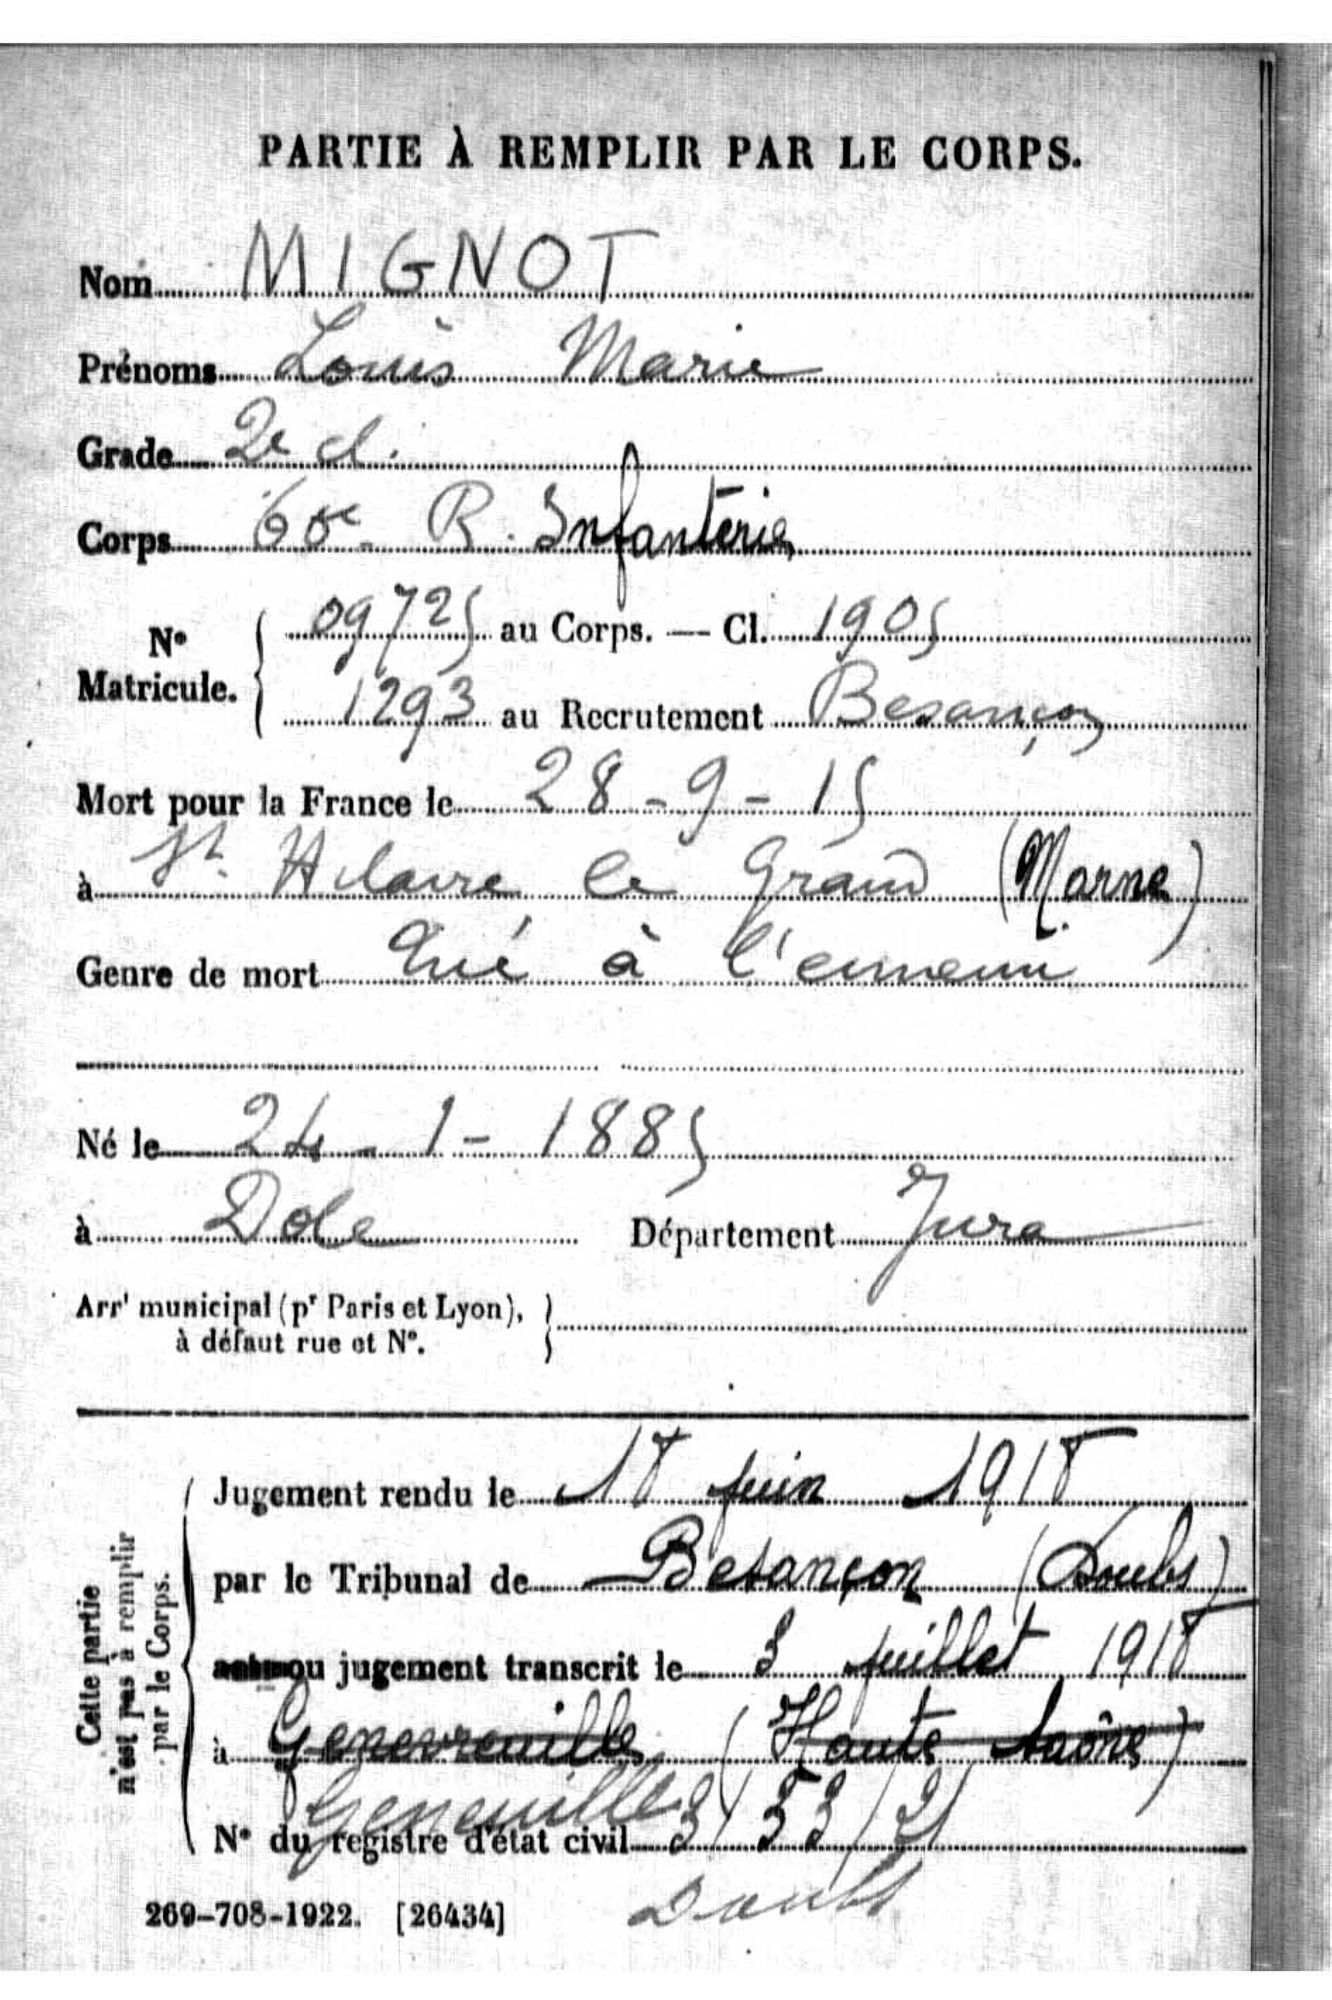 PARTIE À REMPLIR PAR LE CORPS.
Nom MIGNOT
Prénoms Louis Marie
Grade 2e cl.
Corps 60e R. Infanterie
N° Matricule. 09725 au Corps. — Cl. 1905
1293 au Recrutement Besançon
Mort pour la France le 28-9-15
à St Hilaire le Grand (Marne)
Genre de mort Tué à l'ennemi
Né le 24-1-1885
à Dole Département Jura
Arrt municipal (pr Paris et Lyon),
à défaut rue et N°.
Cette partie
n'est pas à remplir
par le Corps.
Jugement rendu le 18 juin 1918
par le Tribunal de Besançon (Doubs)
ou jugement transcrit le 3 juillet 1918
à Genevreuille (Haute Saône)
Geneuille
N° du registre d'état civil 3/53/21
Doubs
269-708-1922. [26434]